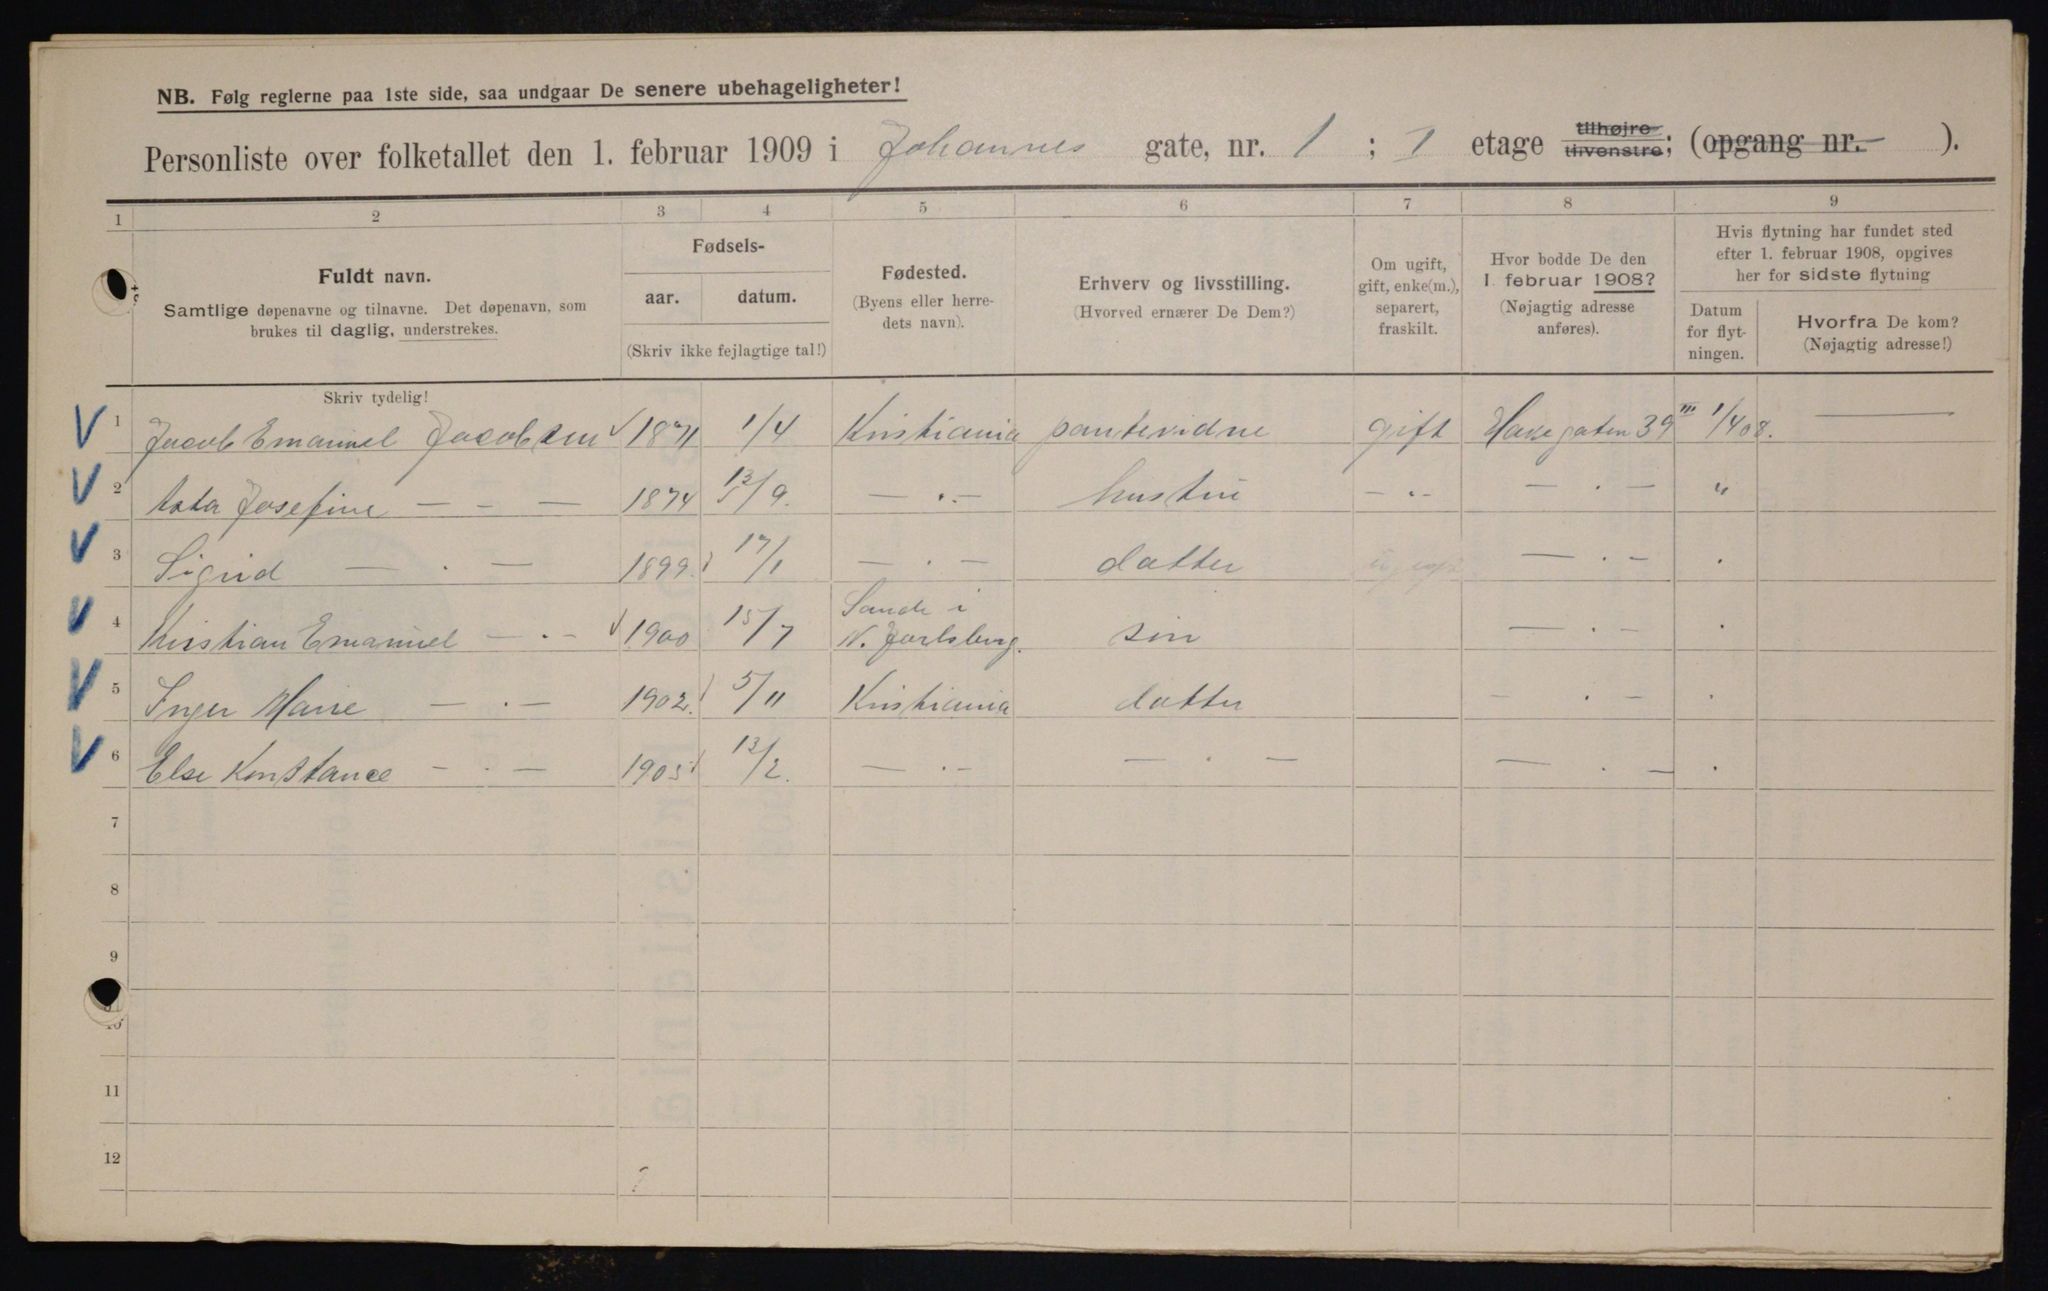 NB. Følg reglerne paa 1ste side, saa undgaar De senere ubehageligheter!
Personliste over folketallet den 1. februar 1909 i Johannes gate, nr. 1 ; I etage tilhøjre tilvenstre; (opgang nr. ).
1 2 3 4 5 6 7 8 9
Fuldt navn.
Samtlige døpenavne og tilnavne. Det døpenavn, som
brukes til daglig, understrekes.
Fødsels-
aar. datum.
(Skriv ikke fejlagtige tal!)
Fødested.
(Byens eller herre-
dets navn).
Erhverv og livsstilling.
(Hvorved ernærer De Dem?)
Om ugift,
gift, enke(m.),
separert,
fraskilt.
Hvor bodde De den
1. februar 1908?
(Nøjagtig adresse
anføres).
Hvis flytning har fundet sted
efter 1. februar 1908, opgives
her for sidste flytning
Datum
for flyt-
ningen.
Hvorfra De kom?
(Nøjagtig adresse!)
Skriv tydelig!
V 1 Jacob Emanuel Jacobsen 1871 1/4 Kristiania pantevidne gift 39 III 1/4 08. —
V 2 Josefine — - — 1874 /9. — . — hustru — . - — . — "
V 3 Sigrid — . — 1899. 17/1 — . — datter ugift — . — .
V 4 Kristian Emanuel — . — 1900 15/7 Sande i
N. Jarlsberg. sin — . — .
V 5 Inger Marie — . — 1902. 5/11 Kristiania datter — . — .
V 6 Else Konstance — . — 1905 13/2. — . — — . — — . — .
7
8
9
10
11
12